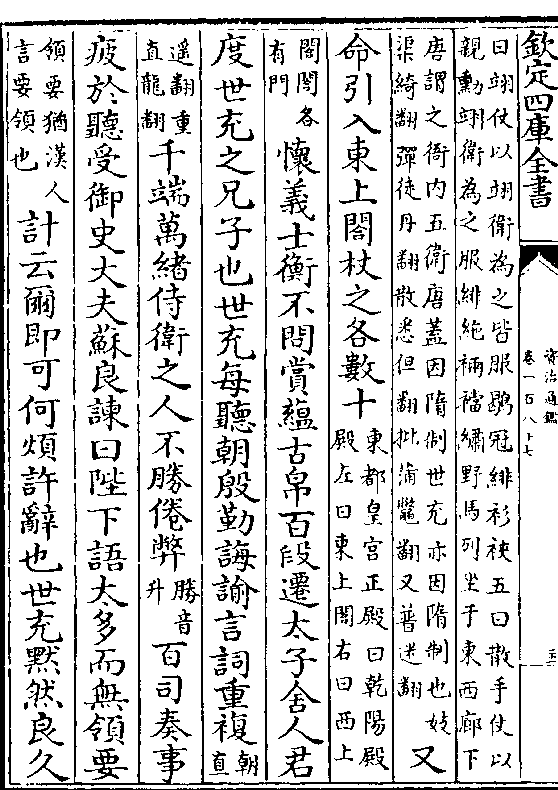 欽定四庫全書
資治通鑑
卷一百八十七
曰翊仗以翊衛為之皆服鶡冠緋衫裌五曰散手仗以
親勳翊衛為之服緋絁裲襠繡野馬列坐于東西廊下
唐謂之衙内五衛唐蓋因隋制世充亦因隋制也妓
渠綺翻彈徒丹翻散悉但翻批蒲鼈翻又普迷翻
又
命引入東上閤杖之各數十
東都皇宮正殿曰乾陽殿
殿左曰東上閤右曰西上
閤閤各
有門
懷義士衡不問賞蘊古帛百段遷太子舍人君
度世充之兄子也世充每聽朝殷勤誨諭言詞重複
朝
直
遥翻重
直龍翻
千端萬緒侍衛之人不勝倦弊
勝音
升
百司奏事
疲於聽受御史大夫蘇良諫曰陛下語太多而無領要
領要猶漢人
言要領也
計云爾即可何煩許辭也世充默然良久